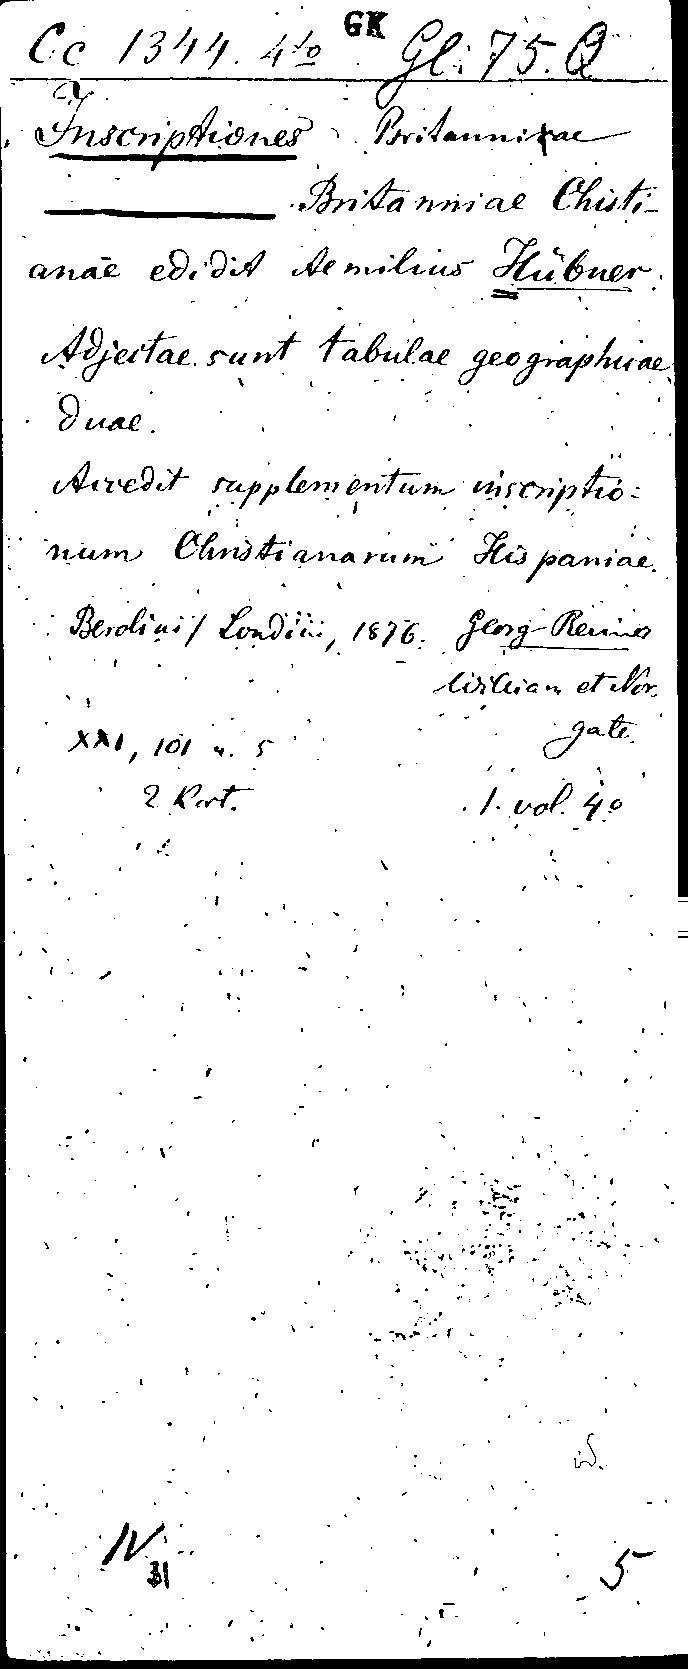 Cc 1344. 4to GK Gl: 75. Q
Inscriptiones Britannicae
Britanniae Christi-
anae edidit Aemilius Hübner.
Adjectae sunt tabulae geographicae
duae.
Accedit supplementum inscriptio-
num Christianarum Hispaniae.
Berolini / Londini, 1876. Georg Reimer
William et Nor-
gate.
XXI, 101 u. 5
2 Kart. 1. vol. 4o
id.
IV 5
31